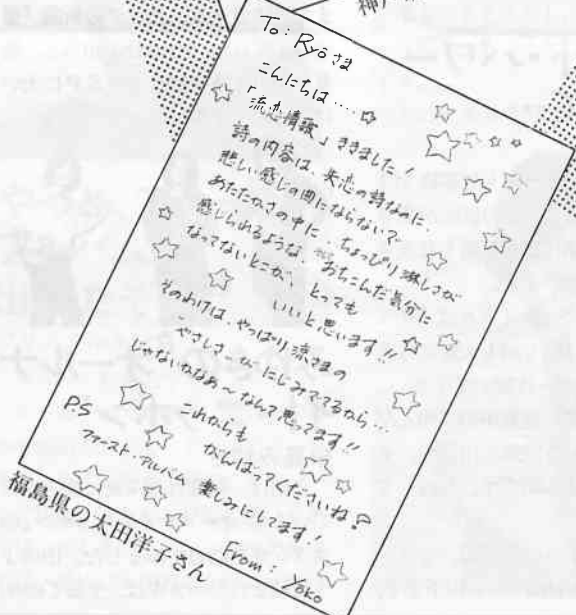 To: Ryōさま
こんにちは……
「流恋情報」ききました!
詩の内容は、失恋の詩なのに、
悲しい感じの曲にならないで、
あたたかさの中に、ちょっぴり淋しさが
感じられるような、おちこんだ気分に
なってないとこが、とっても
いいと思います!!
そのわけは、やっぱり流さまの
やさしさが、にじみでてるから‥
じゃないかなあ〜なんて思ってます!!
これからも
がんばってくださいね
P.S
ファースト・アルバム 楽しみにしてます!
From: Yoko
福島県の太田洋子さん